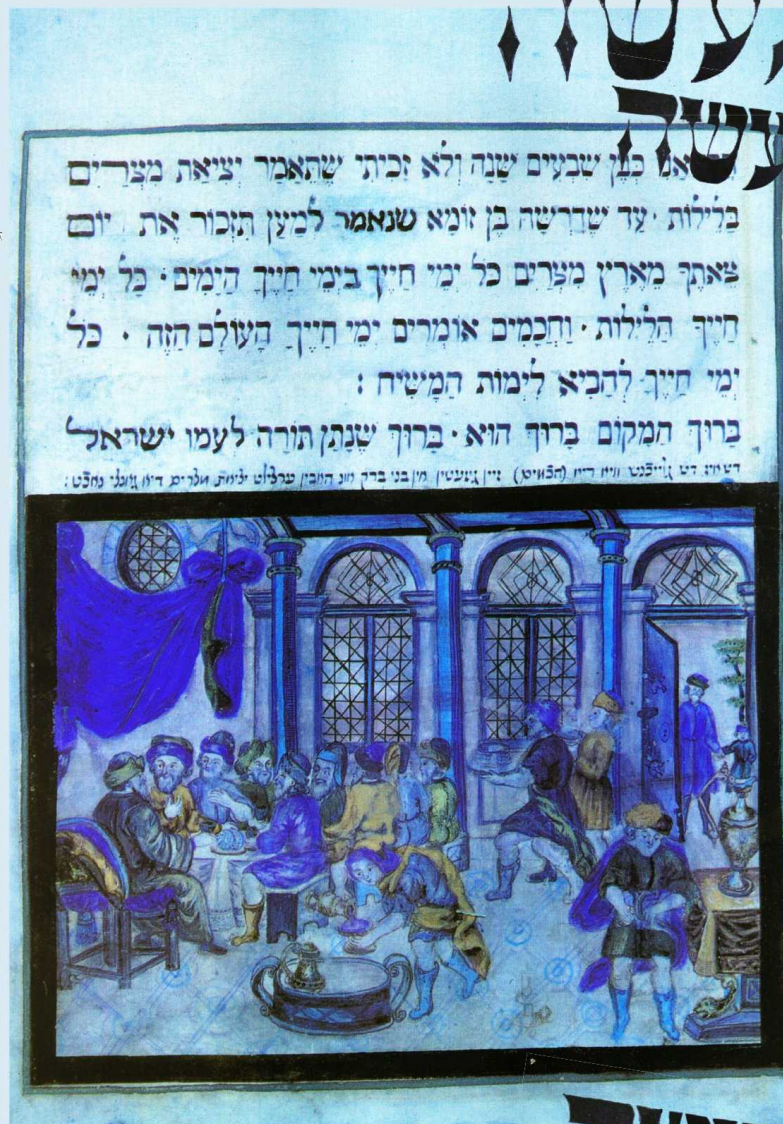 מעשה
מעשה
כְּבֶן שִׁבְעִים שָׁנָה וְלֹא זָכִיתִי שֶׁתֵּאָמֵר יְצִיאַת מִצְרַיִם
בַּלֵּילוֹת · עַד שֶׁדְּרָשָׁהּ בֶּן זוֹמָא שנאמר לְמַעַן תִּזְכּוֹר אֶת יוֹם
צֵאתְךָ מֵאֶרֶץ מִצְרַיִם כֹּל יְמֵי חַיֶּיךָ בימֵי חַיֶּיךָ הַיָּמִים · כָּל יְמֵי
חַיֶּיךָ הַלֵּילוֹת · וַחֲכָמִים אוֹמְרִים יְמֵי חַיֶּיךָ הָעוֹלָם הַזֶּה · כֹּל
יְמֵי חַיֶּיךָ לְהָבִיא לִימוֹת הַמָּשִׁיחַ :
בָּרוּךְ הַמָּקוֹם בָּרוּךְ הוּא · בָּרוּךְ שֶׁנָּתַן תּוֹרָה לעמו ישראל